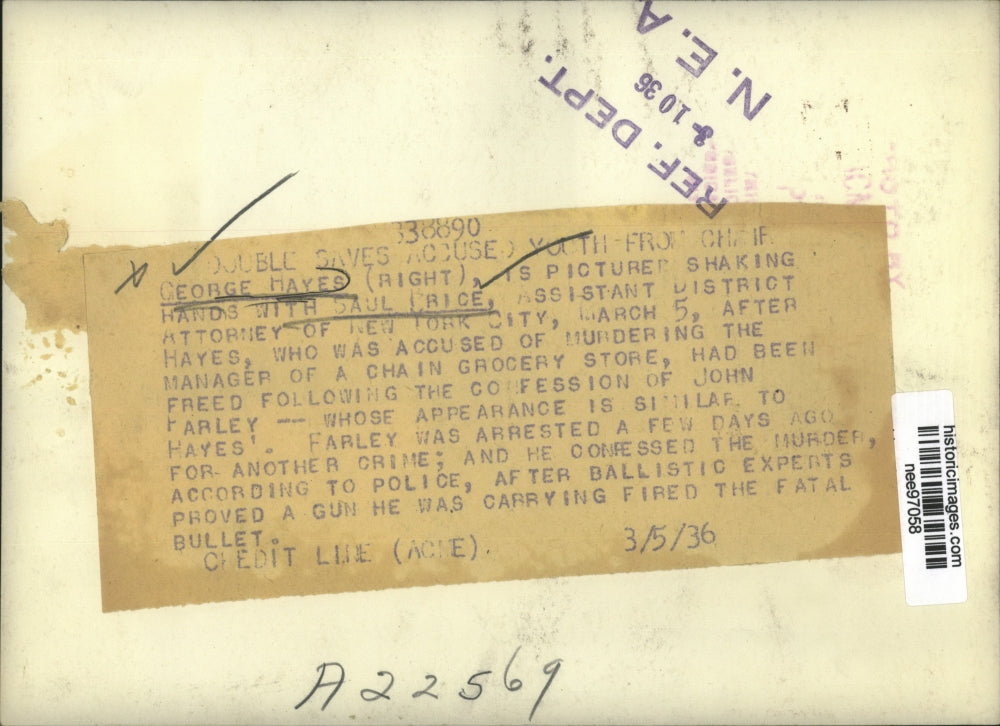 REF. DEPT.
8-10 36
N. E. A
338890
DOUBLE SAVES ACCUSED YOUTH FROM CHAIR
GEORGE HAYES (RIGHT), IS PICTURED SHAKING
HANDS WITH SAUL PRICE, ASSISTANT DISTRICT
ATTORNEY OF NEW YORK CITY, MARCH 5, AFTER
HAYES, WHO WAS ACCUSED OF MURDERING THE
MANAGER OF A CHAIN GROCERY STORE, HAD BEEN
FREED FOLLOWING THE CONFESSION OF JOHN
FARLEY -- WHOSE APPEARANCE IS SIMILAR TO
HAYES'. FARLEY WAS ARRESTED A FEW DAYS AGO
FOR ANOTHER CRIME; AND HE CONFESSED THE MURDER,
ACCORDING TO POLICE, AFTER BALLISTIC EXPERTS
PROVED A GUN HE WAS CARRYING FIRED THE FATAL
BULLET.
CREDIT LINE (ACME). 3/5/36
A22569
historicimages.com
nee97058